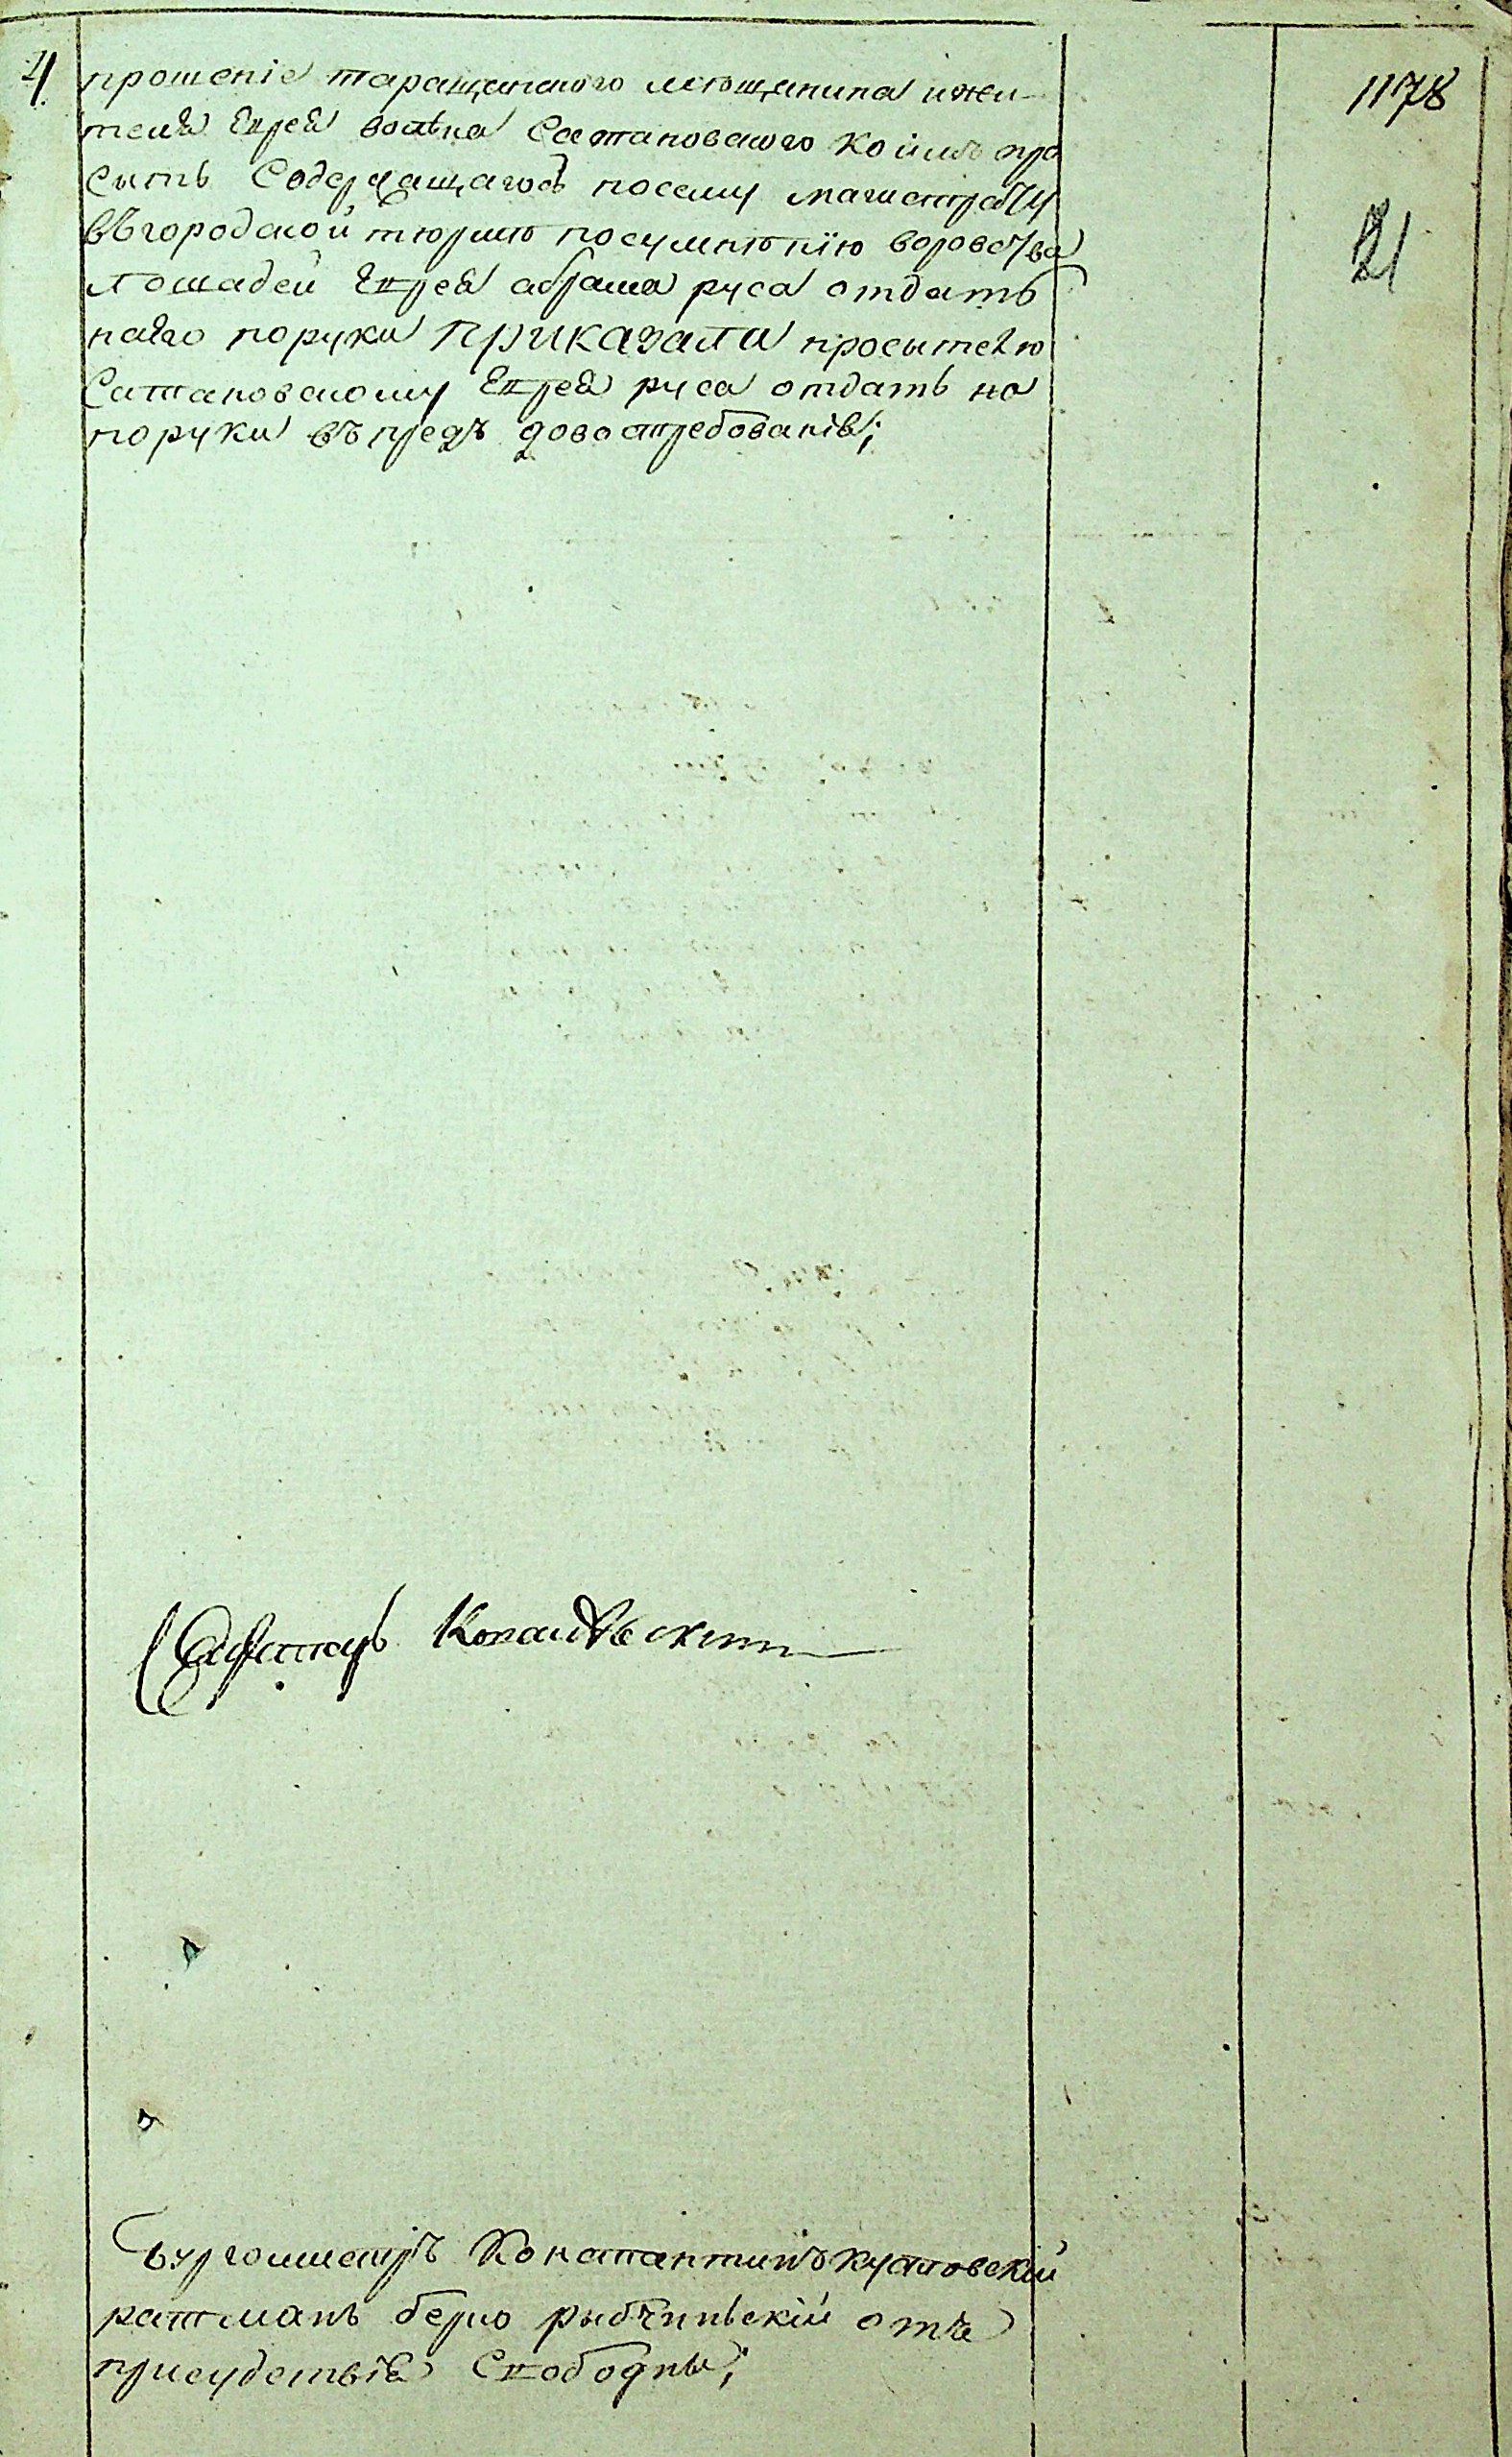 4. прошеніе таращанского мѣщанина ижи-
теля Еврея волька Сатановского коимъ про
сытъ Содержащагось посему магистрату
въгородской тюрмѣ посумнѣнїю воровства
лошадей Еврея абрама руса отдать
наего поруки приказали просытелю
Сатановскому Еврея руса отдать на
поруки въпредъ довостребованія;
1178
21
Бургомистръ Константинъ кутовскій
ратманъ берко рыбчинскій отъ
присудствія Свободны;